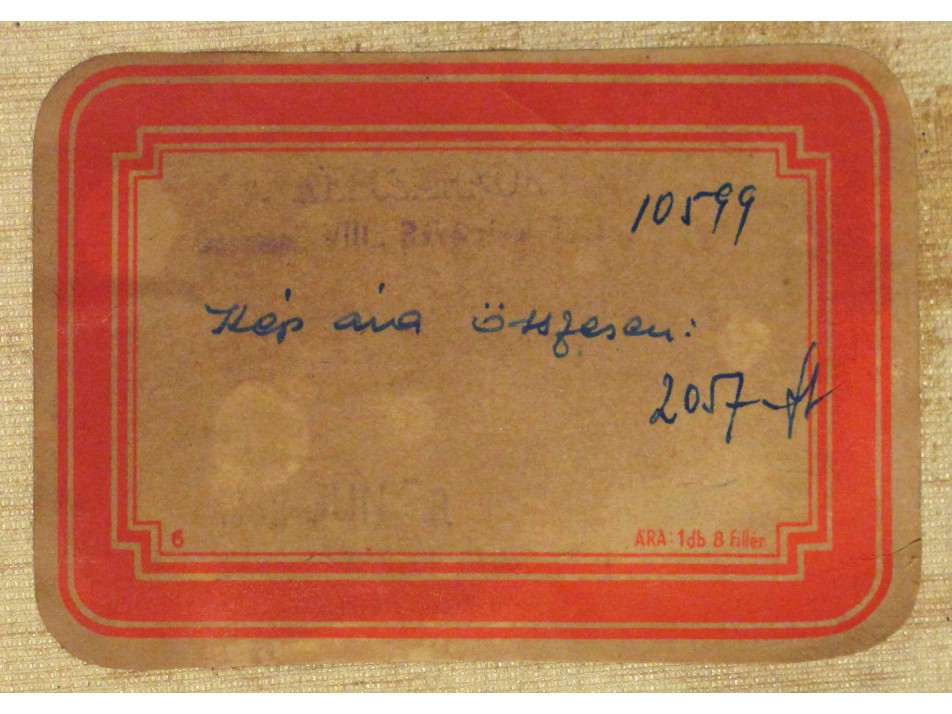 10599
Kép ára összesen:
2057-ft
6
ÁRA: 1db 8 fillér